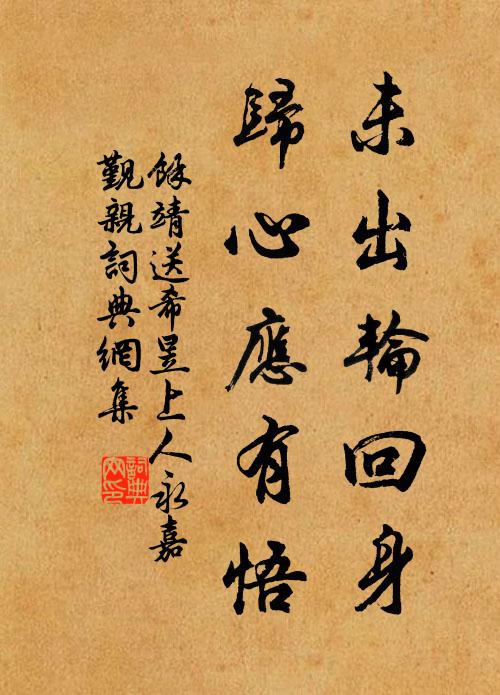 未出輪回身
歸心應有悟
餘靖送希昱上人永嘉
覲親詞典網集
詞典
网印